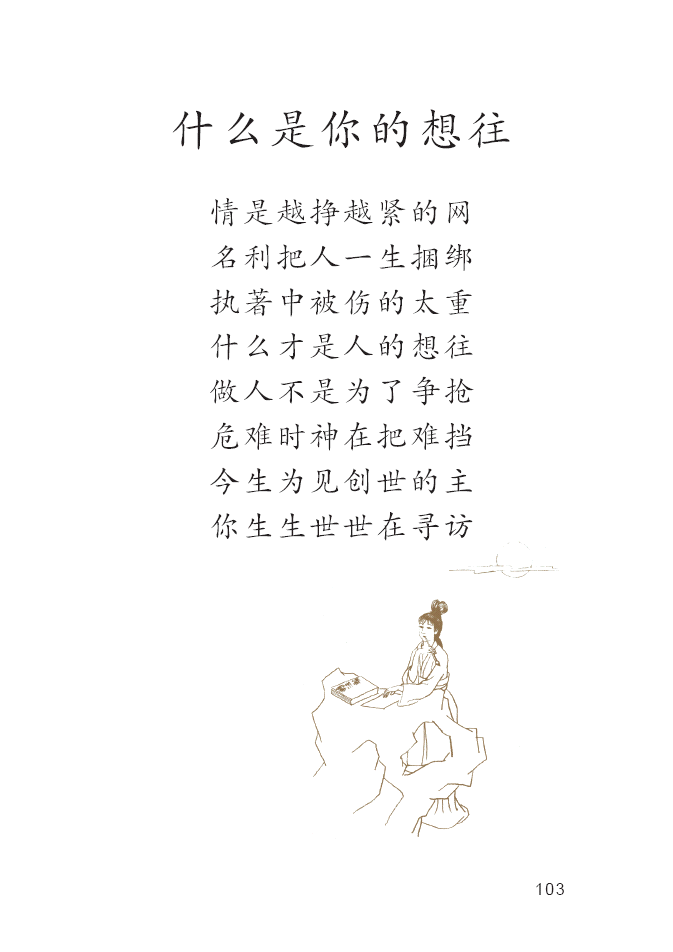 什么是你的想往
情是越挣越紧的网
名利把人一生捆绑
执著中被伤的太重
什么才是人的想往
做人不是为了争抢
危难时神在把难挡
今生为见创世的主
你生生世世在寻访
103